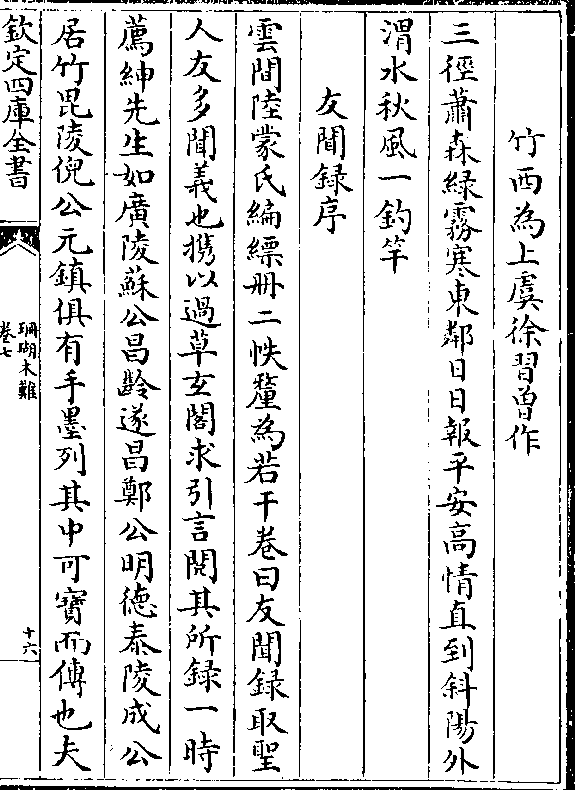 竹西為上虞徐習曽作
三徑蕭森緑霧寒東鄰日日報平安高情直到斜陽外
渭水秋風一釣竿
友聞録序
雲間陸蒙氏編縹册二帙釐為若干卷曰友聞録取聖
人友多聞義也攜以過草玄閣求引言閱其所録一時
薦紳先生如廣陵蘇公昌齡遂昌鄭公明德泰陵成公
居竹毘陵倪公元鎮俱有手墨列其中可寶而傳也夫
欽定四庫全書
珊瑚木難
卷七
十六